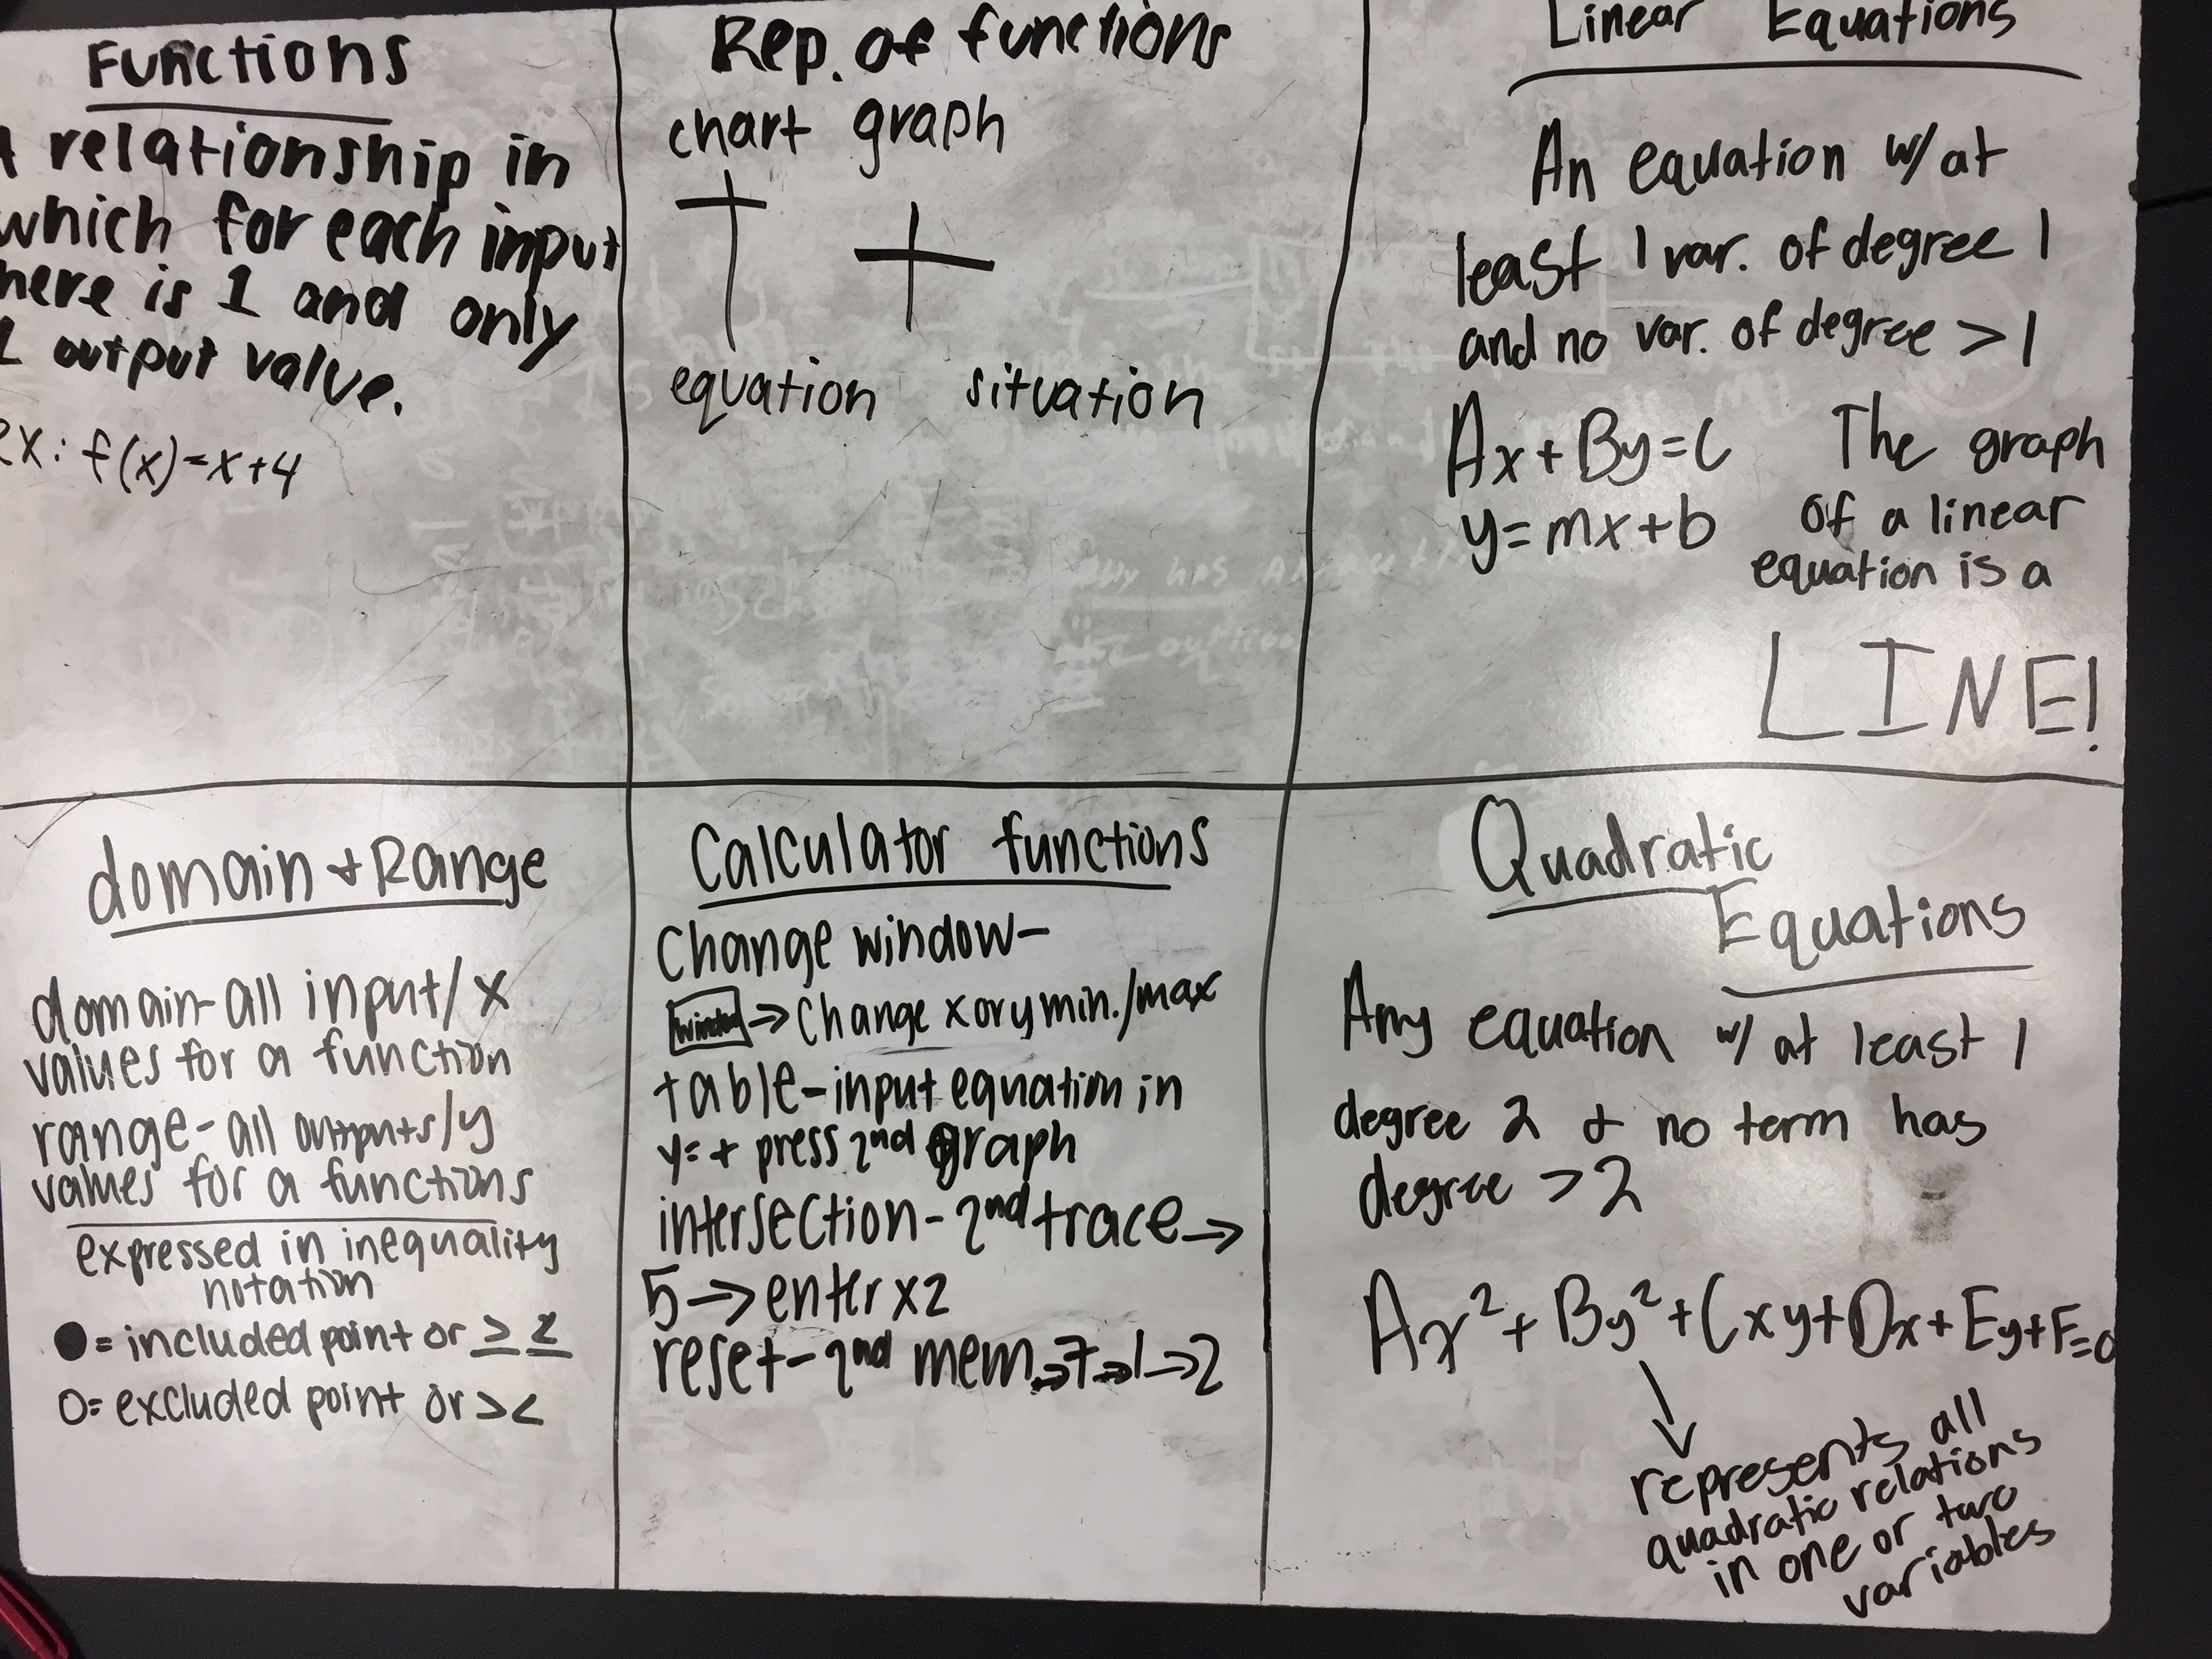 Functions
A relationship in
which for each input
here is 1 and only
1 output value.
ex: f(x)=x+4
Rep. of functions
chart graph
equation situation
Linear Equations
An equation w/ at
least 1 var. of degree 1
and no var. of degree > 1
Ax + By = C
y = mx + b
The graph
of a linear
equation is a
LINE!
domain + Range
domain - all input/x
values for a function
range - all outputs/y
values for a functions
expressed in inequality
notation
● = included point or ≥ ≤
O = excluded point or > <
Calculator functions
Change window -
window → Change x or y min./max
table - input equation in
y= + press 2nd graph
intersection - 2nd trace →
5 → enter x2
reset - 2nd mem → 7 → 1 → 2
Quadratic
Equations
Any equation w/ at least 1
degree 2 + no term has
degree > 2
Ax² + By² + Cxy + Dx + Ey + F = 0
represents all
quadratic relations
in one or two
variables